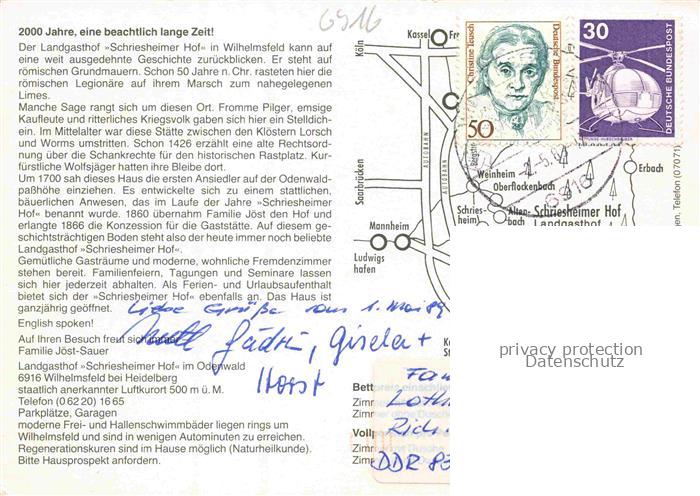 6916
2000 Jahre, eine beachtlich lange Zeit!
Der Landgasthof »Schriesheimer Hof« in Wilhelmsfeld kann auf
eine weit ausgedehnte Geschichte zurückblicken. Er steht auf
römischen Grundmauern. Schon 50 Jahre n. Chr. rasteten hier die
römischen Legionäre auf ihrem Marsch zum nahegelegenen
Limes.
Manche Sage rangt sich um diesen Ort. Fromme Pilger, emsige
Kaufleute und ritterliches Kriegsvolk gaben sich hier ein Stelldich-
ein. Im Mittelalter war diese Stätte zwischen den Klöstern Lorsch
und Worms umstritten. Schon 1426 erzählt eine alte Rechtsord-
nung über die Schankrechte für den historischen Rastplatz. Kur-
fürstliche Wolfsjäger hatten ihre Bleibe dort.
Um 1700 sah dieses Haus die ersten Ansiedler auf der Odenwald-
paßhöhe einziehen. Es entwickelte sich zu einem stattlichen,
bäuerlichen Anwesen, das im Laufe der Jahre »Schriesheimer
Hof« benannt wurde. 1860 übernahm Familie Jöst den Hof und
erlangte 1866 die Konzession für die Gaststätte. Auf diesem ge-
schichtsträchtigen Boden steht also der heute immer noch beliebte
Landgasthof »Schriesheimer Hof«.
Gemütliche Gasträume und moderne, wohnliche Fremdenzimmer
stehen bereit. Familienfeiern, Tagungen und Seminare lassen
sich hier jederzeit abhalten. Als Ferien- und Urlaubsaufenthalt
bietet sich der »Schriesheimer Hof« ebenfalls an. Das Haus ist
ganzjährig geöffnet.
Liebe Grüße vom 1. Mai 89
English spoken!
Auf Ihren Besuch freut sich immer
Familie Jöst-Sauer
Gisela +
Horst
Landgasthof »Schriesheimer Hof« im Odenwald
6916 Wilhelmsfeld bei Heidelberg
staatlich anerkannter Luftkurort 500 m ü. M.
Telefon (0 62 20) 16 65
Parkplätze, Garagen
moderne Frei- und Hallenschwimmbäder liegen rings um
Wilhelmsfeld und sind in wenigen Autominuten zu erreichen.
Regenerationskuren sind im Hause möglich (Naturheilkunde).
Bitte Hausprospekt anfordern.
Köln
Kassel
AUTOBAHN
AUTOBAHN
Saarbrücken
Mannheim
Ludwigs
hafen
Weinheim
Oberflockenbach
Schries-
heim
Alten-
bach
Schriesheimer Hof
Landgasthof
Erbach
Christine Teusch
Deutsche Bundespost
50
30
DEUTSCHE BUNDESPOST
6916
Telefon (07071)
privacy protection
Datenschutz
DDR